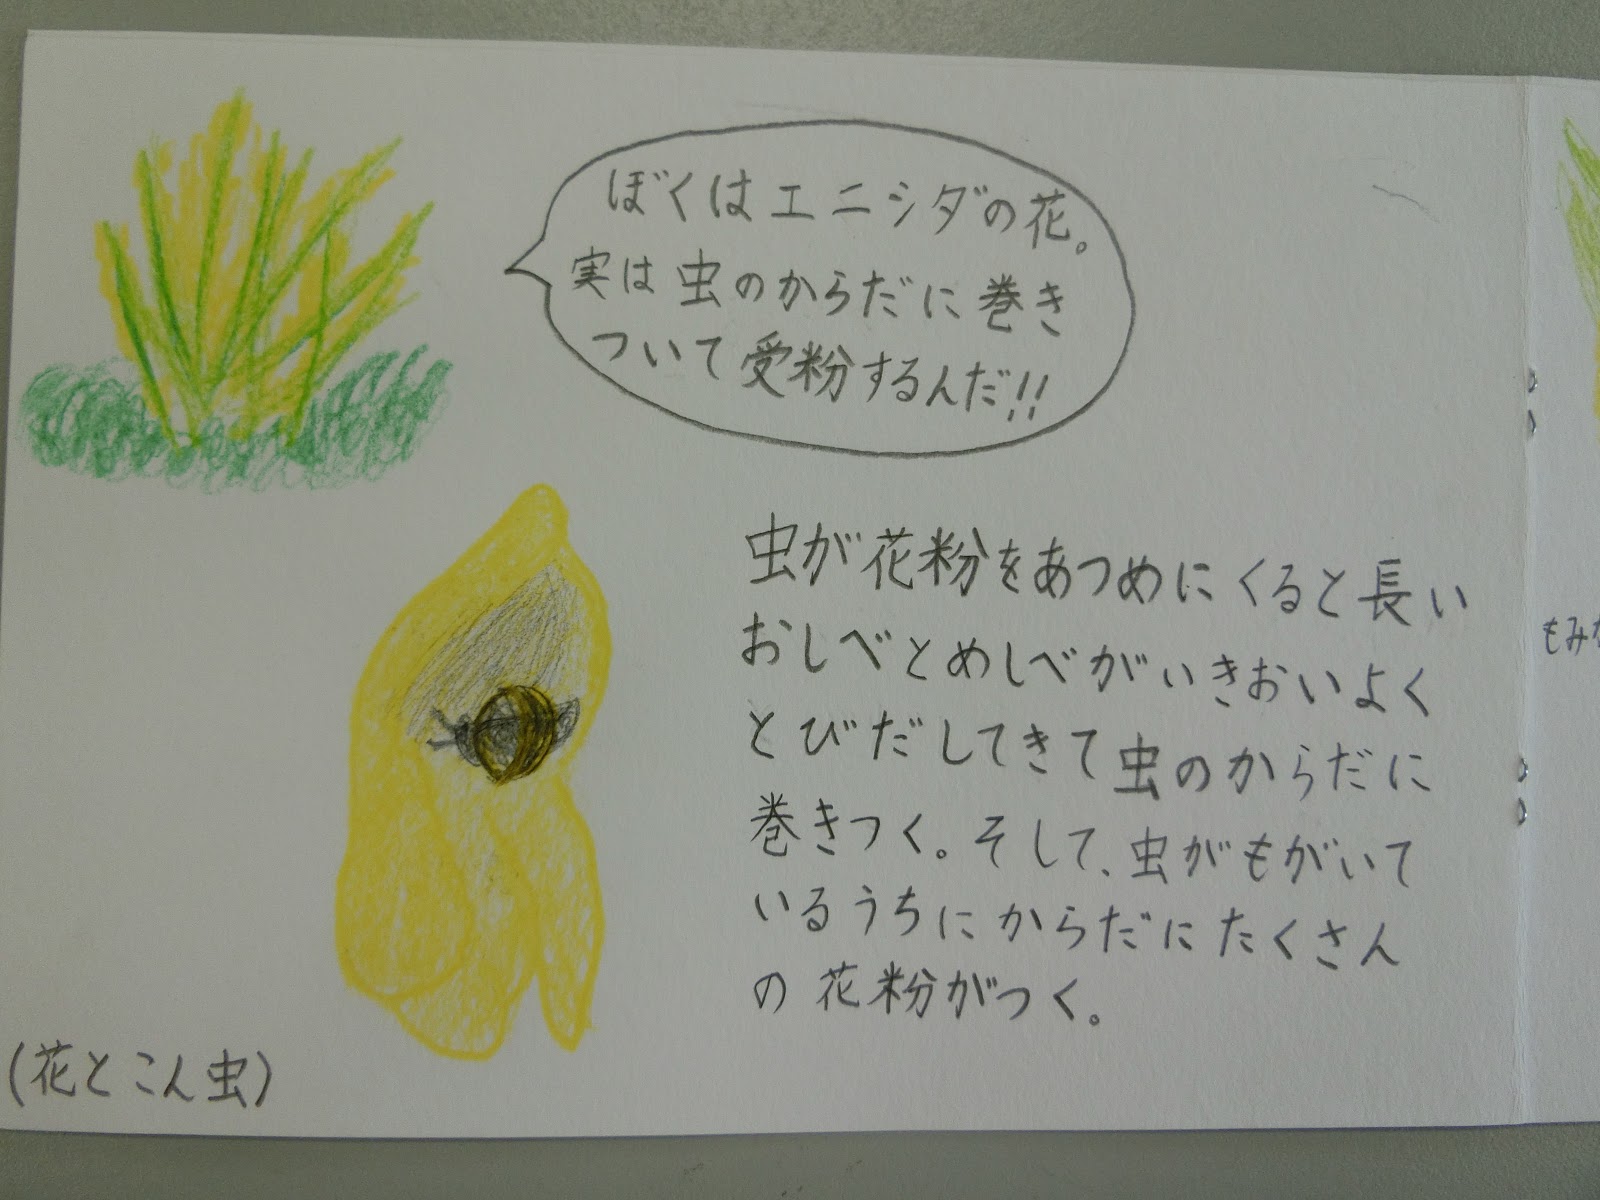 ぼくはエニシダの花。
実は虫のからだに巻き
ついて受粉するんだ!!
虫が花粉をあつめにくると長い
おしべとめしべがいきおいよく
とびだしてきて虫のからだに
巻きつく。そして、虫がもがいて
いるうちにからだにたくさん
の花粉がつく。
(花とこん虫)
もみ